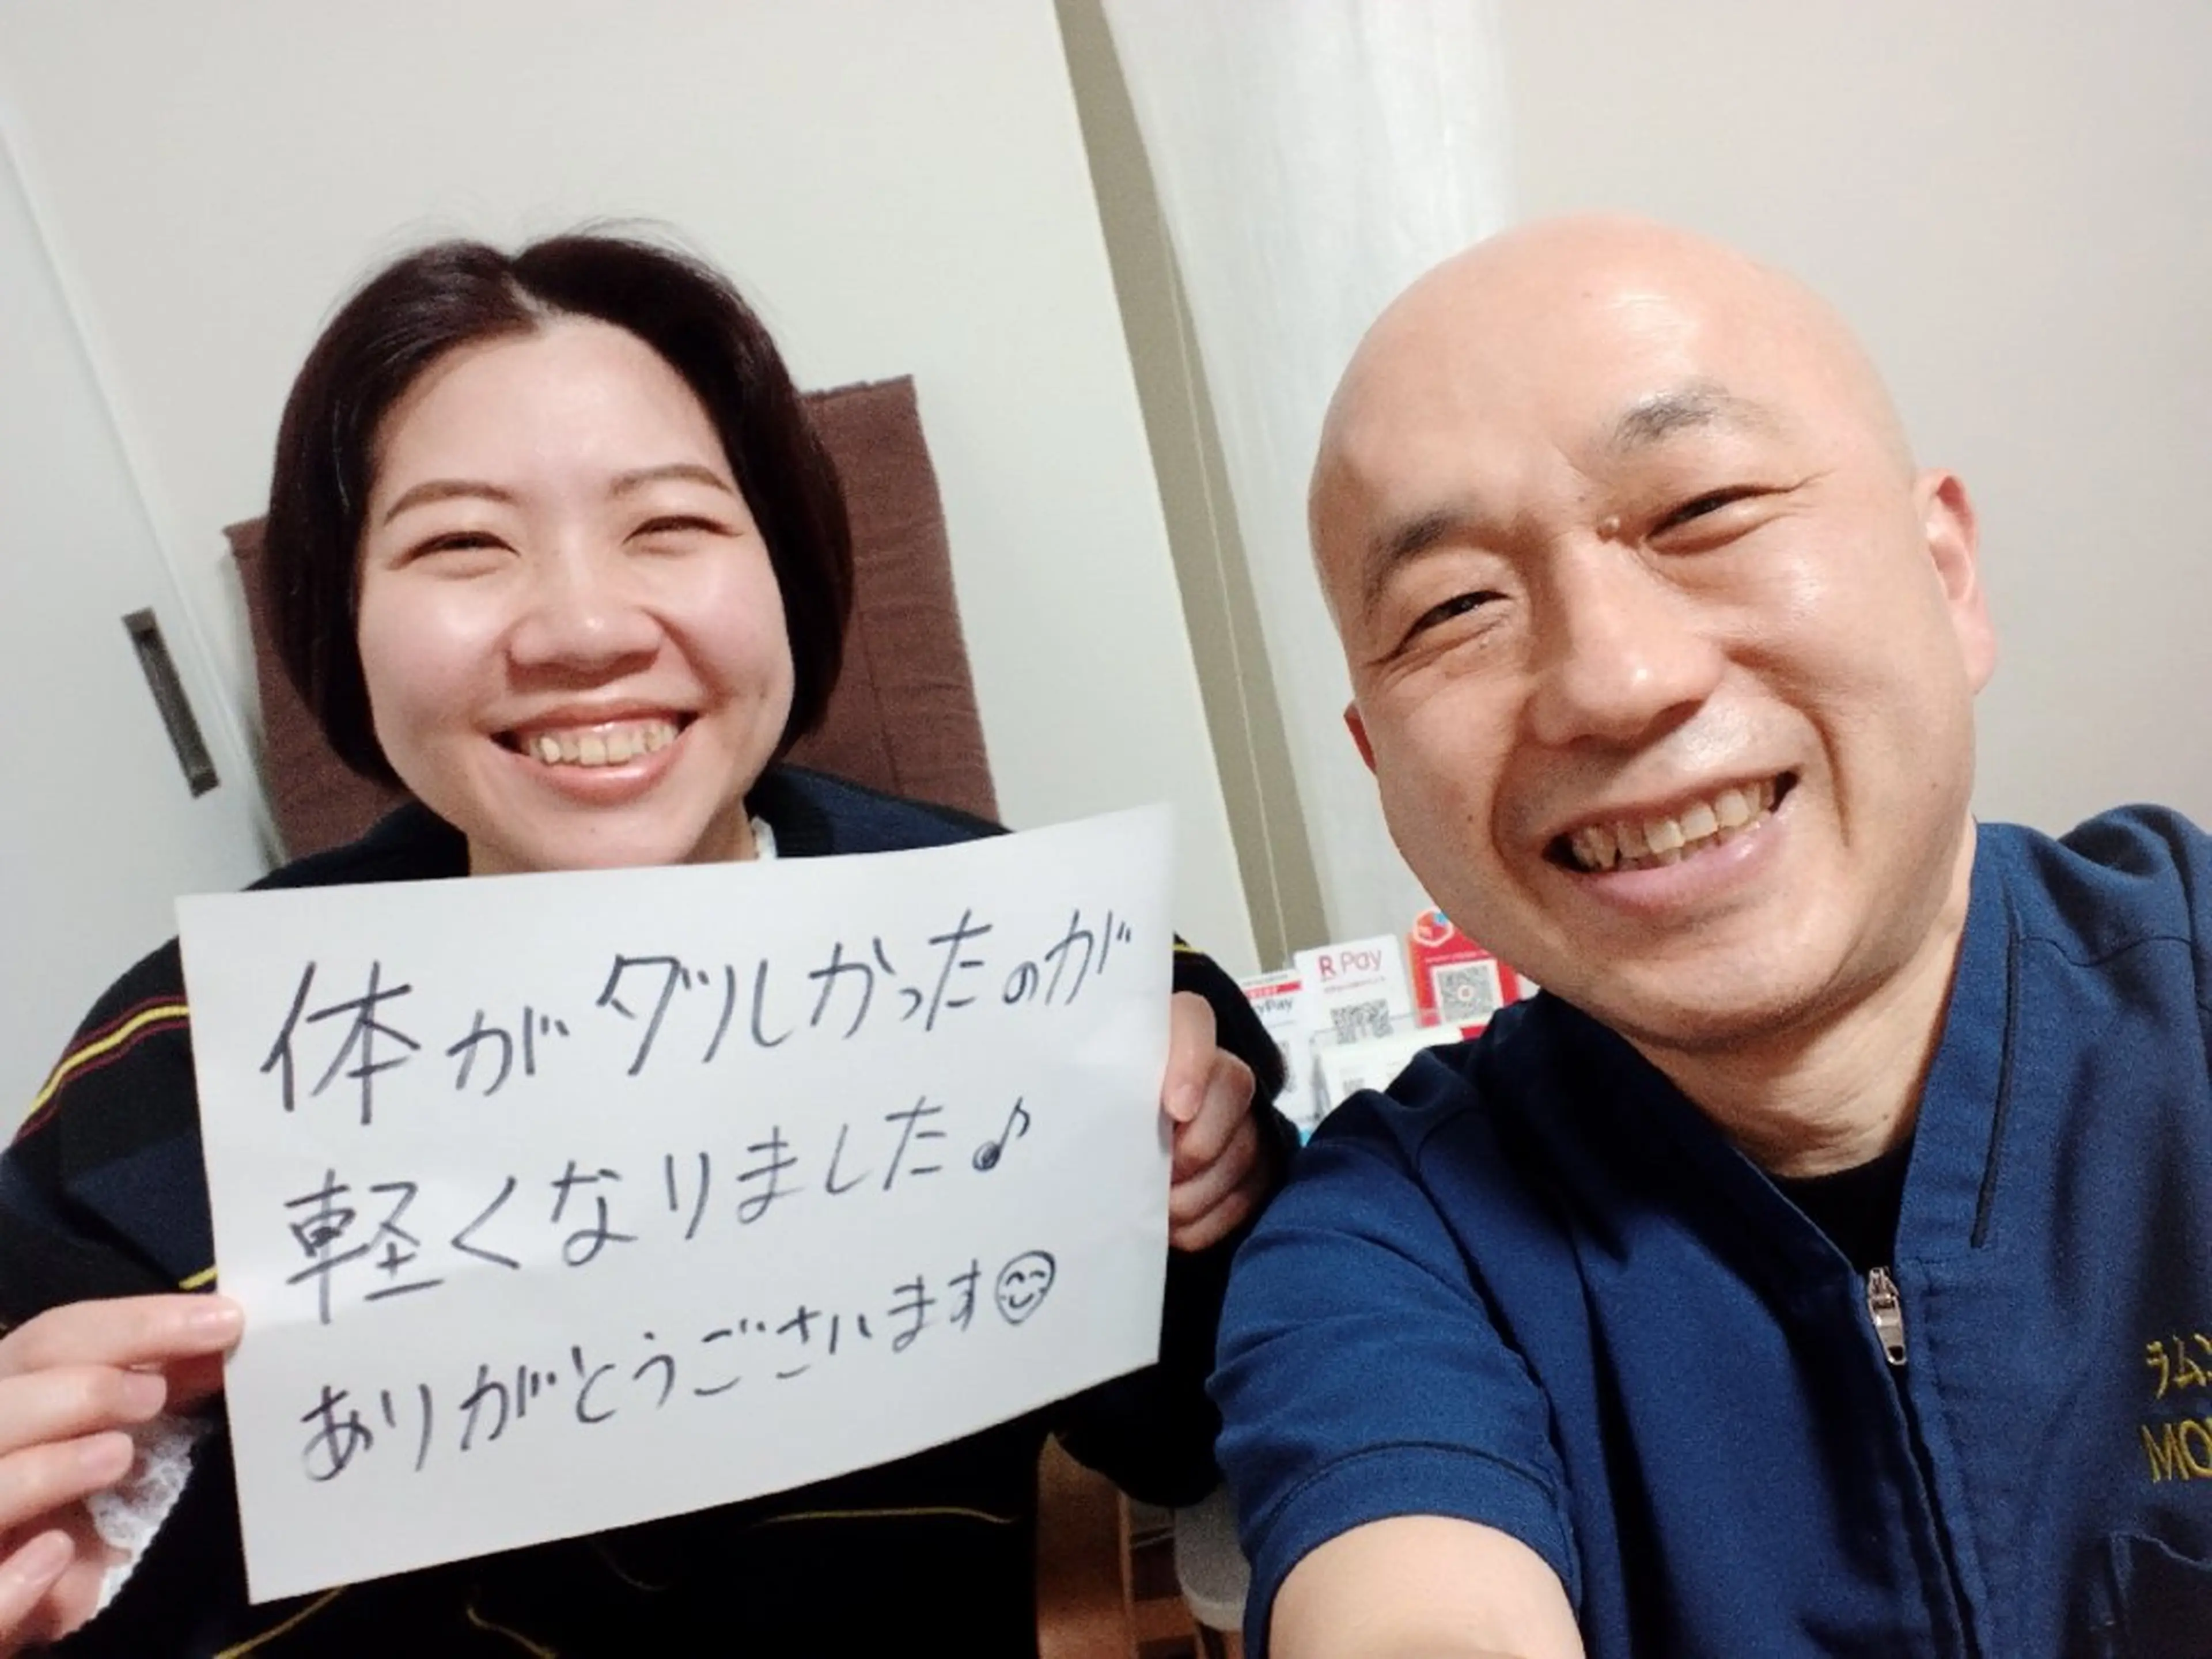 体がダルかったのが
軽くなりました♪
ありがとうございます😊
R Pay
yPay
ラム
MO